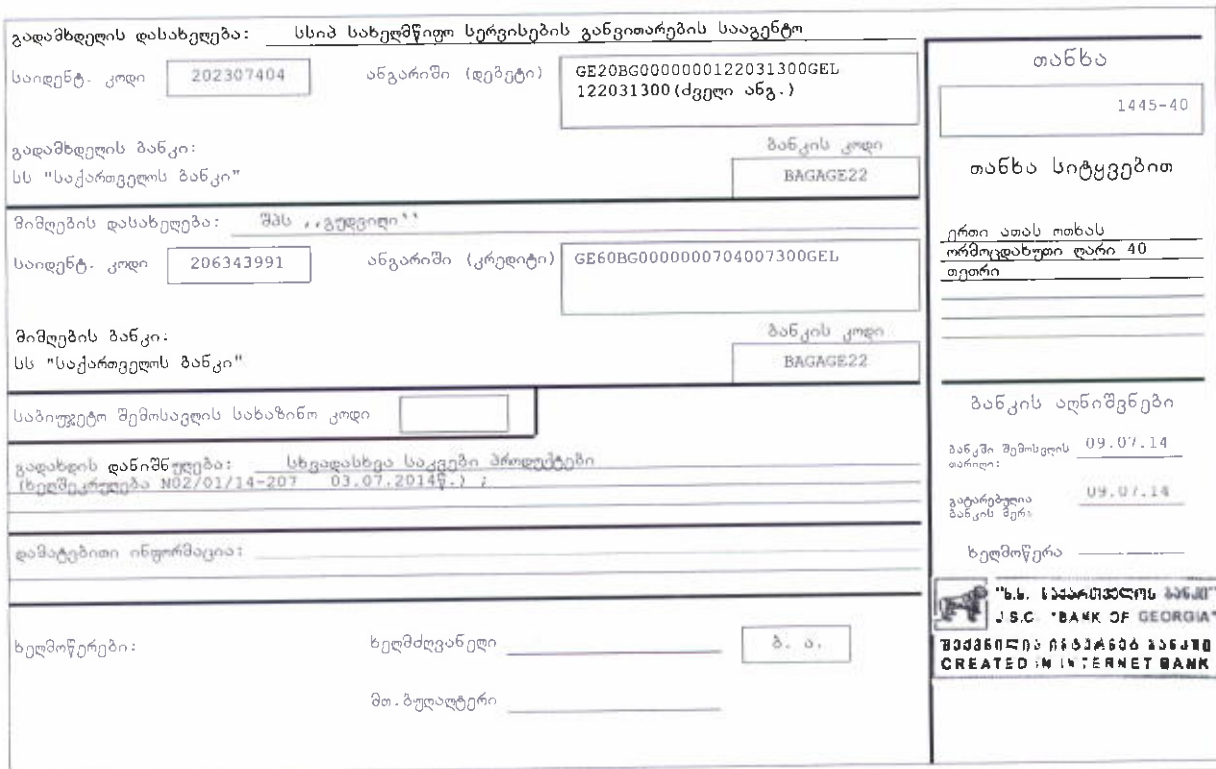 გადამხდელის დასახელება: სსიპ სახელმწიფო სერვისების განვითარების სააგენტო
საიდენტ. კოდი 202307404 ანგარიში (დებეტი) GE20BG0000000122031300GEL
122031300(ძველი ანგ.)
გადამხდელის ბანკი: ბანკის კოდი
სს "საქართველოს ბანკი" BAGAGE22
მიმღების დასახელება: შპს ,,გუდვილი``
საიდენტ. კოდი 206343991 ანგარიში (კრედიტი) GE60BG0000000704007300GEL
მიმღების ბანკი: ბანკის კოდი
სს "საქართველოს ბანკი" BAGAGE22
საბიუჯეტო შემოსავლის სახაზინო კოდი
გადახდის დანიშნულება: სხვადასხვა საკვები პროდუქტები
(ხელშეკრულება N02/01/14-207 03.07.2014წ.) ;
დამატებითი ინფორმაცია:
ხელმოწერები: ხელმძღვანელი ბ. ა.
მთ.ბუღალტერი
თანხა
1445-40
თანხა სიტყვებით
ერთი ათას ოთხას
ორმოცდახუთი ლარი 40
თეთრი
ბანკის აღნიშვნები
ბანკში შემოსვლის 09.07.14
თარიღი:
გატარებულია 09.07.14
ბანკის მერ:
ხელმოწერა
"ს.ს. საქართველოს ბანკი"
J.S.C. "BANK OF GEORGIA"
შექმნილია ინტერნეტ ბანკში
CREATED IN INTERNET BANK